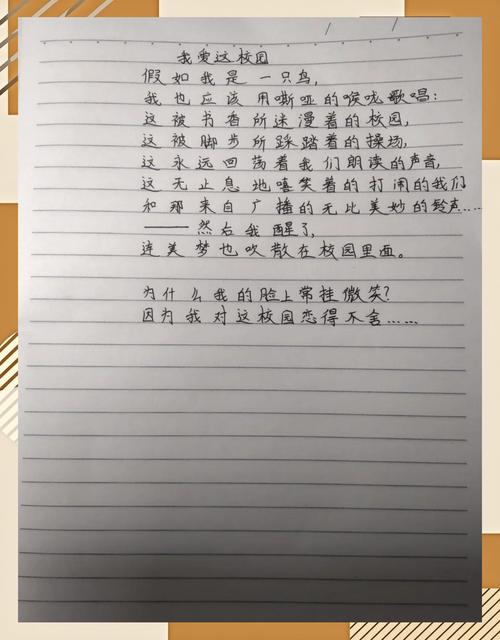 我爱这校园
假如我是一只鸟,
我也应该用嘶哑的喉咙歌唱:
这被书香所迷漫着的校园,
这被脚步所踩踏着的操场,
这永远回荡着我们朗读的声音,
这无止息地嘻笑着的打闹的我们
和那来自广播的无比美妙的铃声……
——然后我醒了,
连美梦也吹散在校园里面。
为什么我的脸上常挂微笑?
因为我对这校园恋得不舍……